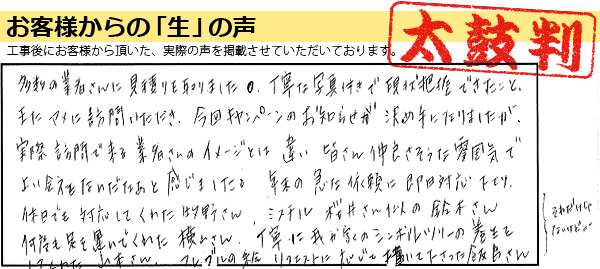 お客様からの「生」の声
工事後にお客様から頂いた、実際の声を掲載させていただいております。
太鼓判
多数の業者さんに見積りを取りました。丁寧な写真付きで現状把握できたこと、
またマメに訪問いただき、今回キャンペーンのお知らせが決め手になりましたが、
実際訪問で来る業者さんのイメージとは違い皆さん仲良さそうな雰囲気で
よい会社なんだなあと感じました。年末の急な依頼に即日対応下さり、
休日でも対応してくれた牧野さん、ミスチル桜井さん似の鈴木さん
それだけじゃないけど。
何度も足を運んでくれた横山さん、丁寧に我が家のシンボルツリーの養生を
してくれた さん、 リクエストに応じて描いて下さった飯島さん